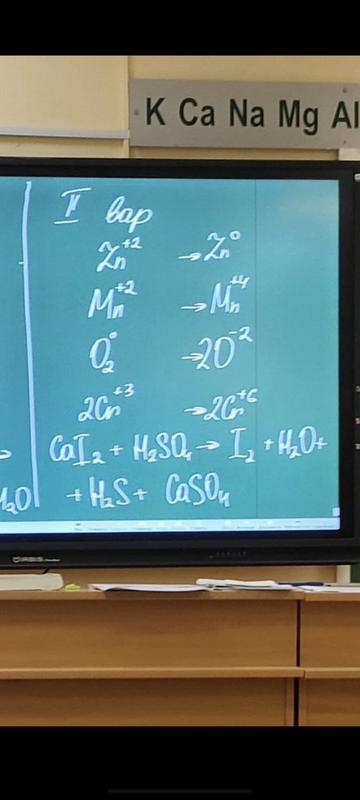 K Ca Na Mg Al
II вар
Zn⁺² → Zn⁰
Mn⁺² → Mn⁺⁴
O₂⁰ → 2O⁻²
2Cr⁺³ → 2Cr⁺⁶
CaI₂ + H₂SO₄ → I₂ + H₂O +
+ H₂S + CaSO₄